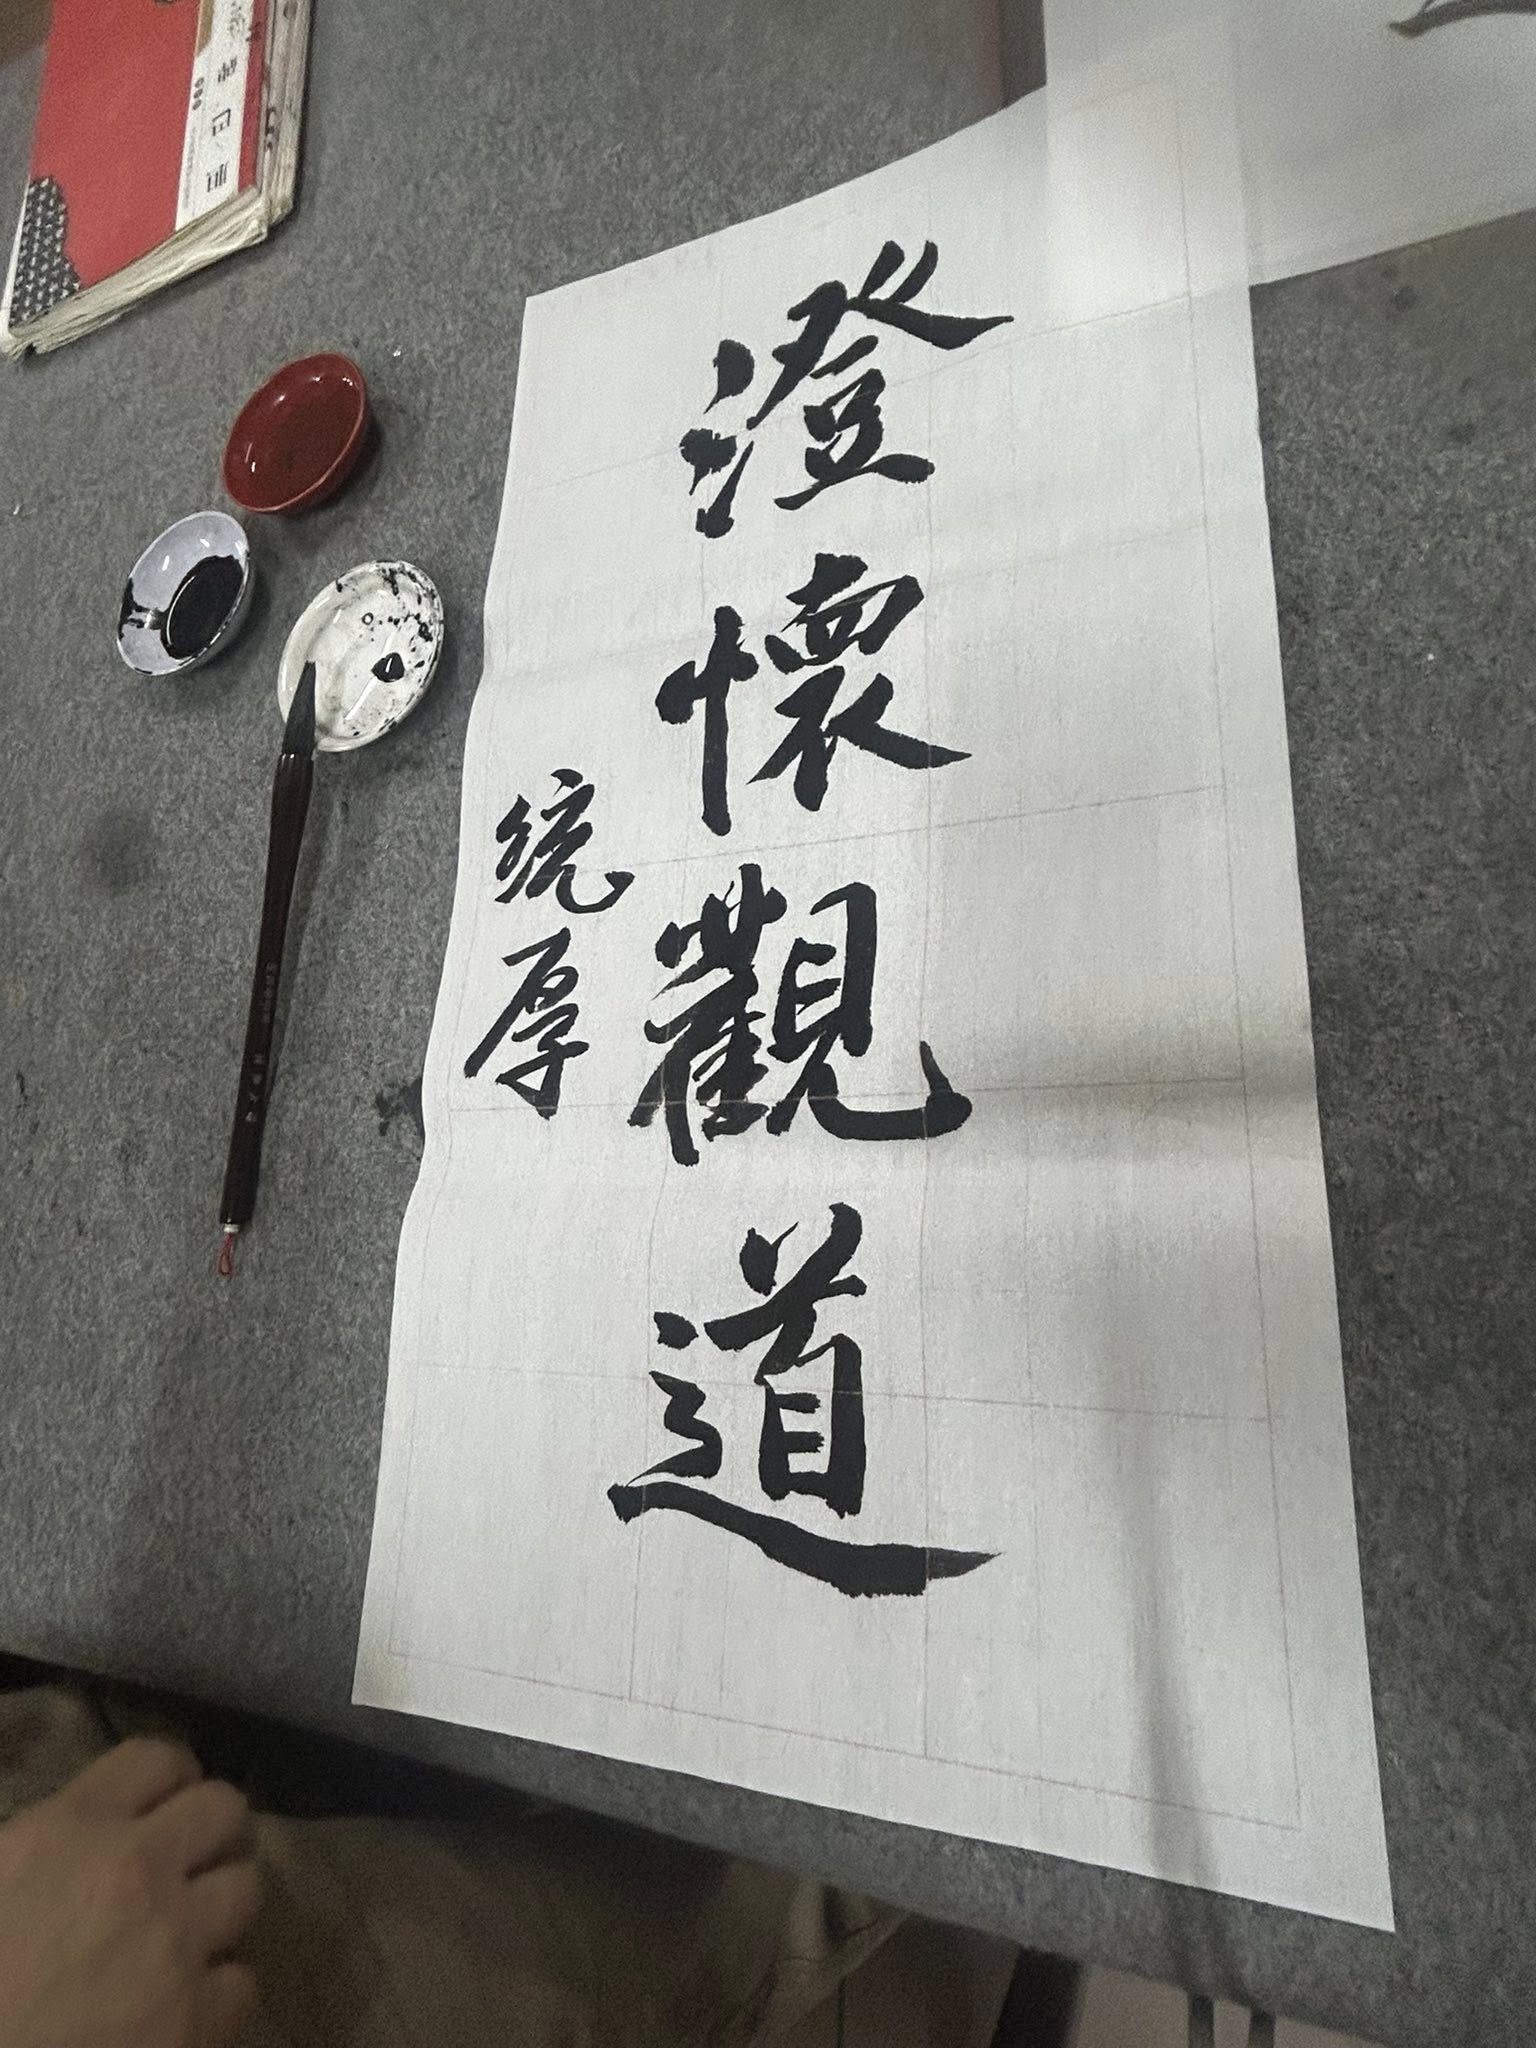 澄懷觀道
统厚